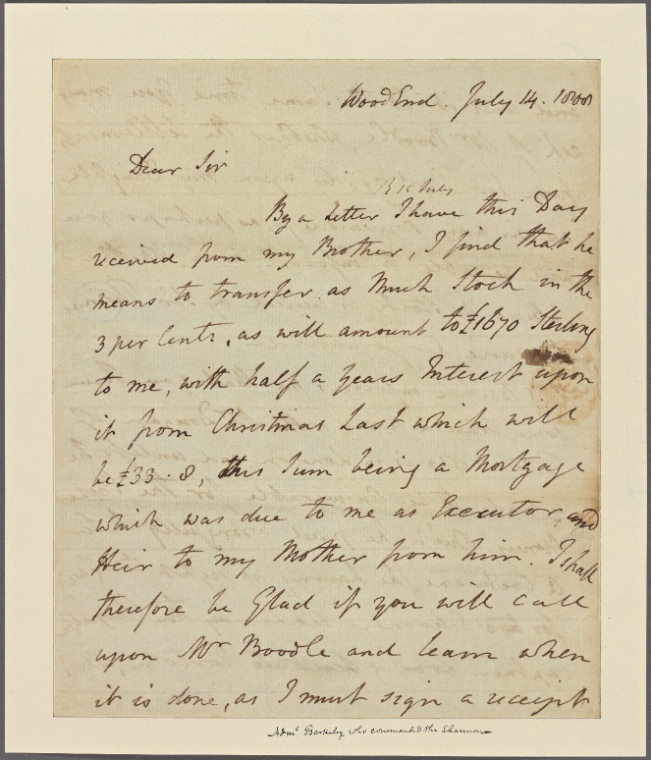 Wood End. July 14. 1808
Dear Sir
By a Letter I have this Day
received from my Brother, I find that he
means to transfer as Much Stock in the
3 per Cents, as will amount to £1670 Sterling
to me, with half a years Interest upon
it from Christmas Last which will
be £33.8, this Sum being a Mortgage
which was due to me as Executor, and
Heir to my Mother from him. I shall
therefore be Glad if you will call
upon Mr Boodle and learn when
it is done, as I must sign a receipt
Adml Berkeley who commanded the Shannon